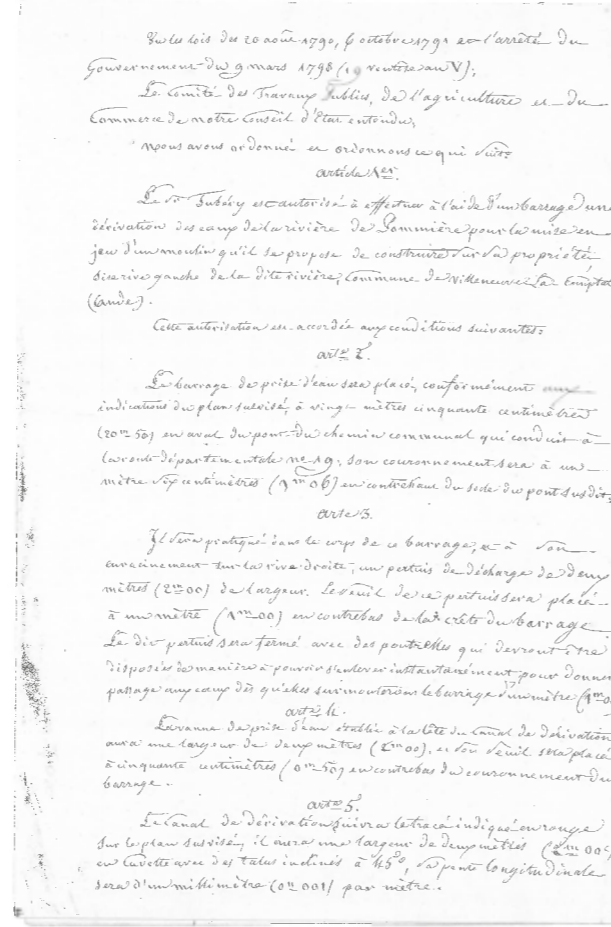 Vu les lois des 20 août 1790, 6 octobre 1791 et l'arrêté du
Gouvernement du 9 mars 1798 (19 ventôse an VI);
Le Comité des Travaux Publics, de l'agriculture et du
Commerce de notre Conseil d'Etat entendu,
nous avons ordonné et ordonnons ce qui suit:
article 1er.
Le Sr Tubéry est autorisé à effectuer à l'aide d'un barrage une
dérivation des eaux de la rivière de Pommière pour la mise en
jeu d'un moulin qu'il se propose de construire sur sa propriété
sise rive gauche de la dite rivière, Commune de Villeneuve La Comptal
(Aude).
Cette autorisation est accordée aux conditions suivantes:
arte 2.
Le barrage de prise d'eau sera placé, conformément aux
indications du plan susvisé, à vingt mètres cinquante centimètres
(20m 50) en aval du pont du chemin communal qui conduit à
la route départementale no 19; son couronnement sera à un
mètre six centimètres (1m 06) en contrebas du sode du pont susdit.
arte 3.
Il sera pratiqué dans le corps de ce barrage, et à son
enracinement sur la rive droite, un pertuis de décharge de deux
mètres (2m 00) de largeur. Le seuil de ce pertuis sera placé
à un mètre (1m 00) en contrebas de la crête du barrage
Le dit pertuis sera fermé avec des poutrelles qui devront être
disposées de manière à pouvoir s'enlever instantanément pour donner
passage aux eaux dès qu'elles surmonteront le barrage d'un mètre (1m 0
arte 4.
La vanne de prise d'eau établie à la tête du Canal de dérivation
aura une largeur de deux mètres (2m 00), et son seuil sera placé
à cinquante centimètres (0m 50) en contrebas du couronnement du
barrage.
arte 5.
Le Canal de dérivation suivra le tracé indiqué en rouge
sur le plan susvisé, il aura une largeur de deux mètres (2m 00)
en cuvette avec des talus inclinés à 45°, sa pente longitudinale
sera d'un millimètre (0m 001) par mètre.